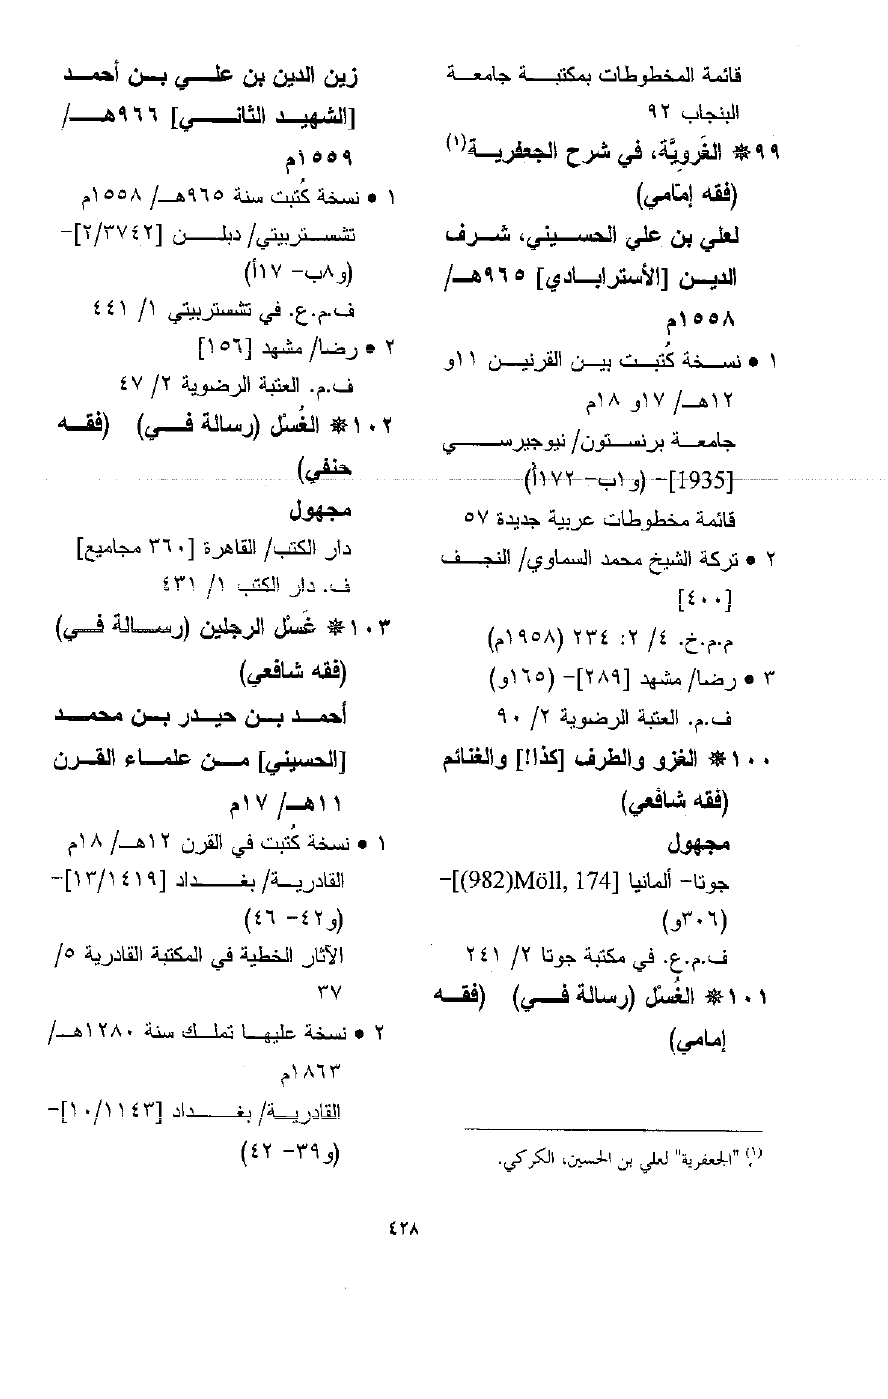 قائمة المخطوطات بمكتبة جامعة
البنجاب ٩٢
٩٩ ❋ الغَروِيَّة، في شرح الجعفرية(١)
(فقه إمامي)
لعلي بن علي الحسيني، شرف
الدين [الأسترابادي] ٩٦٥هـ/
١٥٥٨م
١ • نسخة كُتبت بين القرنين ١١و
١٢هـ/ ١٧و ١٨م
جامعة برنستون/ نيوجيرسي
[1935]- (و١ب- ١٧٢أ)
قائمة مخطوطات عربية جديدة ٥٧
٢ • تركة الشيخ محمد السماوي/ النجف
[٤٠٠]
م.م.خ. ٤/ ٢: ٢٣٤ (١٩٥٨م)
٣ • رضا/ مشهد [٢٨٩]- (١٦٥و)
ف.م. العتبة الرضوية ٢/ ٩٠
١٠٠ ❋ الغزو والطرف [كذا!] والغنائم
(فقه شافعي)
مجهول
جوتا- ألمانيا [Möll, 174(982)]-
(٣٠٦و)
ف.م.ع. في مكتبة جوتا ٢/ ٢٤١
١٠١ ❋ الغُسْل (رسالة في) (فقه
إمامي)
(١) "الجعفرية" لعلي بن الحسين، الكركي.
زين الدين بن علي بن أحمد
[الشهيد الثاني] ٩٦٦هـ/
١٥٥٩م
١ • نسخة كُتبت سنة ٩٦٥هـ/ ١٥٥٨م
تشستربيتي/ دبلن [٢/٣٧٤٢]-
(و٨ب- ١٧أ)
ف.م.ع. في تشستربيتي ١/ ٤٤١
٢ • رضا/ مشهد [١٥٦]
ف.م. العتبة الرضوية ٢/ ٤٧
١٠٢ ❋ الغُسْل (رسالة في) (فقه
حنفي)
مجهول
دار الكتب/ القاهرة [٣٦٠ مجاميع]
ف. دار الكتب ١/ ٤٣١
١٠٣ ❋ غَسْل الرجلين (رسالة في)
(فقه شافعي)
أحمد بن حيدر بن محمد
[الحسيني] من علماء القرن
١١هـ/ ١٧م
١ • نسخة كُتبت في القرن ١٢هـ/ ١٨م
القادرية/ بغداد [١٣/١٤١٩]-
(و٤٢- ٤٦)
الآثار الخطية في المكتبة القادرية ٥/
٣٧
٢ • نسخة عليها تملك سنة ١٢٨٠هـ/
١٨٦٣م
القادرية/ بغداد [١٠/١١٤٣]-
(و٣٩- ٤٢)
٤٢٨